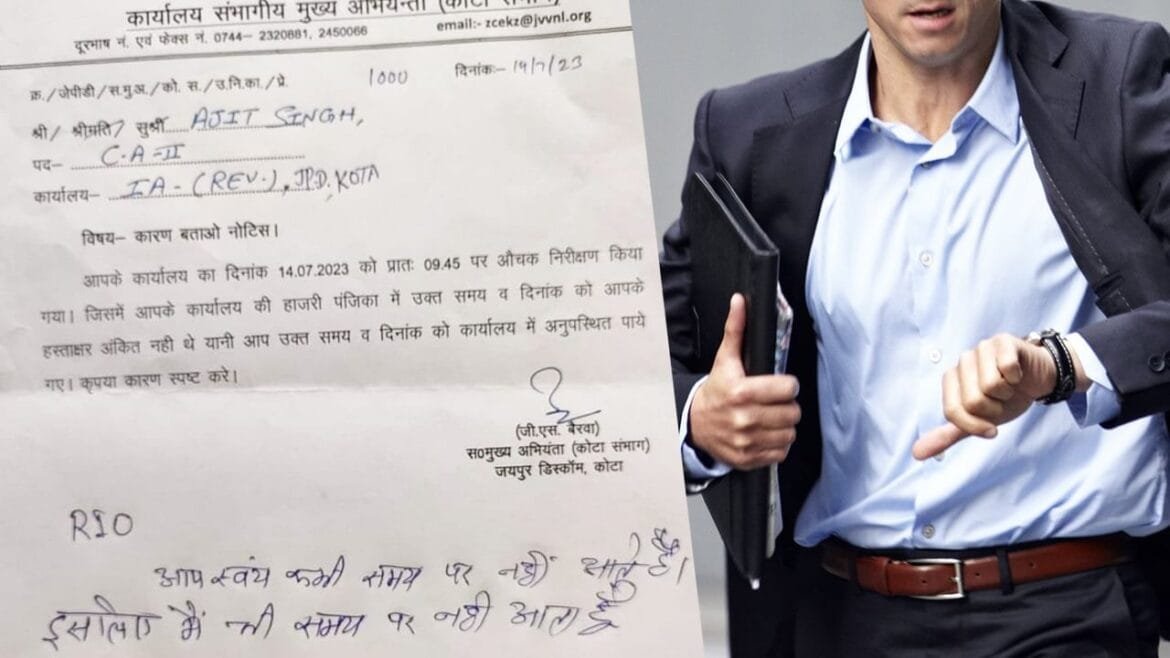 कार्यालय संभागीय मुख्य अभियन्ता (कोटा संभाग)
दूरभाष नं. एवं फेक्स नं. 0744– 2320881, 2450066
email:- zcekz@jvvnl.org
क्र./जेपीडी/स.मु.अ./को. स./उ.नि.का./प्रे. 1000 दिनांक:– 14/7/23
श्री/ श्रीमति/ सुश्री..... AJIT SINGH,
पद– C.A-II
कार्यालय– IA-(REV.), JPD, KOTA
विषय– कारण बताओ नोटिस।
आपके कार्यालय का दिनांक 14.07.2023 को प्रातः 09.45 पर औचक निरीक्षण किया
गया। जिसमें आपके कार्यालय की हाजरी पंजिका में उक्त समय व दिनांक को आपके
हस्ताक्षर अंकित नही थे यानी आप उक्त समय व दिनांक को कार्यालय में अनुपस्थित पाये
गए। कृपया कारण स्पष्ट करे।
(जी.एस. बैरवा)
स0मुख्य अभियंता (कोटा संभाग)
जयपुर डिस्कॉम, कोटा
RIO
आप स्वंय कभी समय पर नहीं आते है।
इसलिए मैं भी समय पर नही आता हूँ